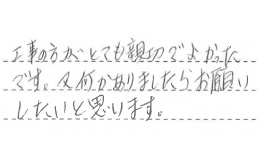 工事の方がとても親切でよかった
です。又何かありましたらお願い
したいと思います。